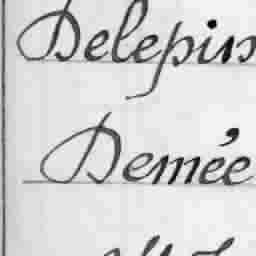 Delepin
Demée